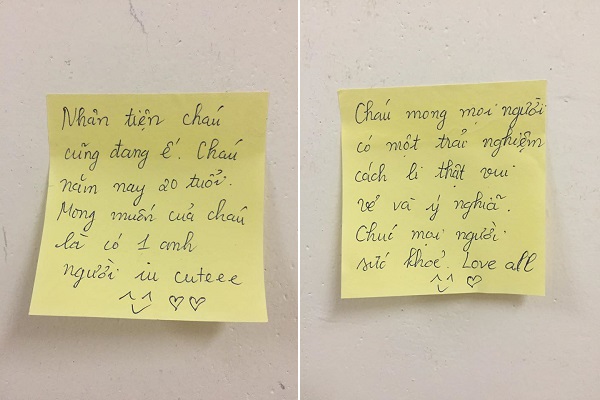 Nhân tiện cháu
cũng đang ế. Cháu
năm nay 20 tuổi.
Mong muốn của cháu
là có 1 anh
người iu cuteee
^ ^ ♡♡
Cháu mong mọi người
có một trải nghiệm
cách li thật vui
vẻ và ý nghĩa.
Chúc mọi người
sức khoẻ. Love all
^ ^ ♡